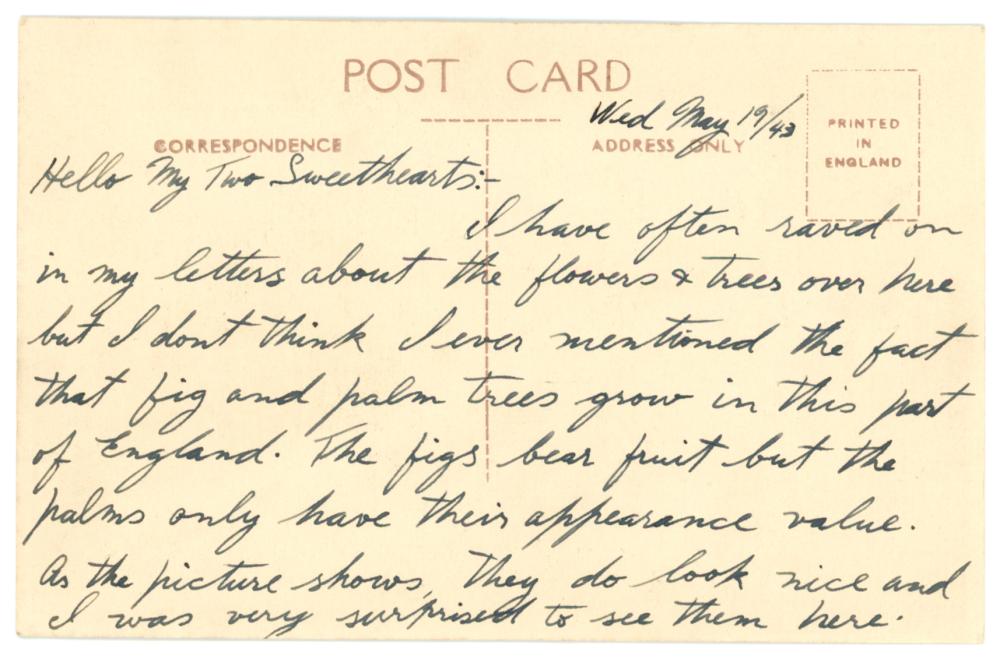 POST CARD
Wed May 19/43
PRINTED
IN
ENGLAND
CORRESPONDENCE
ADDRESS ONLY
Hello My Two Sweethearts:-
I have often raved on
in my letters about the flowers & trees over here
but I dont think I ever mentioned the fact
that fig and palm trees grow in this part
of England. The figs bear fruit but the
palms only have their appearance value.
As the picture shows, they do look nice and
I was very surprised to see them here.